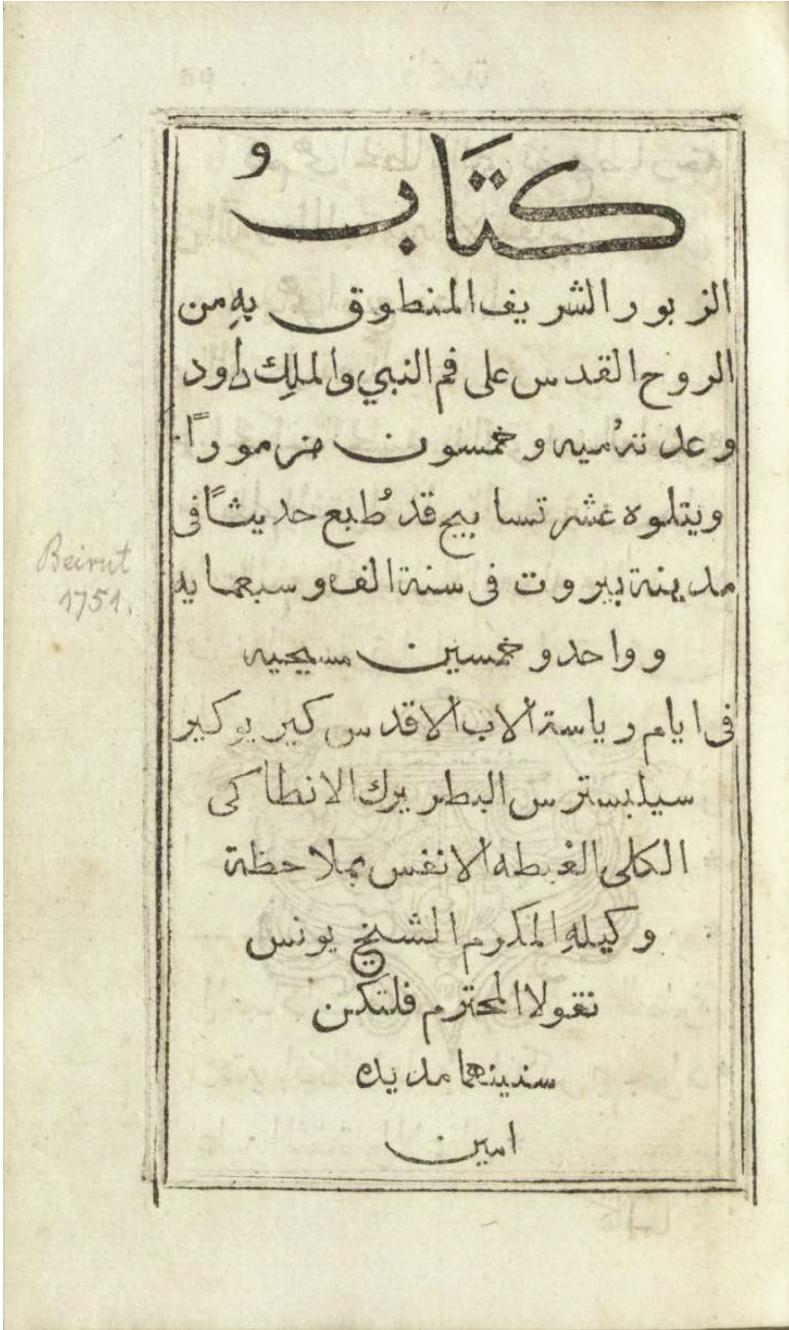 كتاب
الزبور الشريف المنطوق بهِ من
الروح القدس على فم النبي والملك داود
وعدتهُ ميه وخمسون مزموراً
ويتلوه عشر تسابيح قد طُبع حديثاً فى
مدينة بيروت فى سنة الف وسبعمايه
وواحد وخمسين مسيحيه
فى ايام رياسة الاب الاقدس كير يوكير
سيلبسترس البطريرك الانطاكى
الكلى الغبطه الانفس بملاحظة
وكيلهِ المكرم الشيخ يونس
نقولا المحترم فلتكن
سنينهما مديده
امين
Beirut
1751.